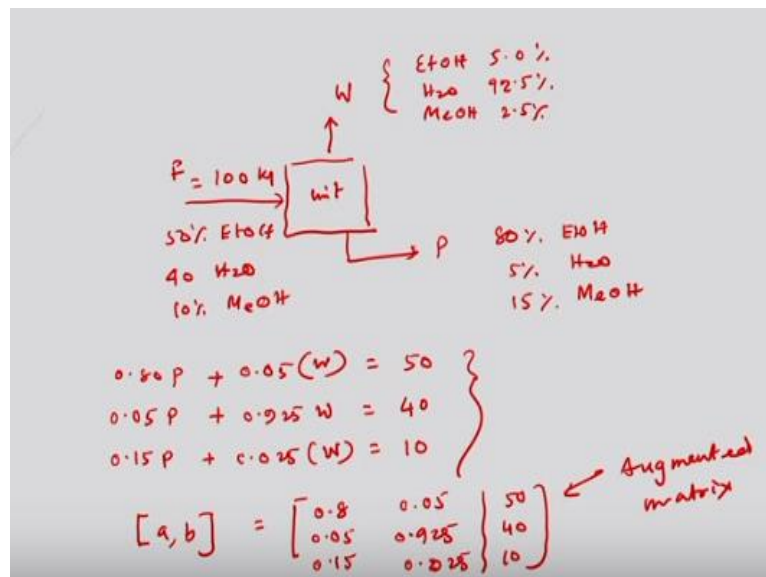 W { EtOH 5.0%.
H2O 92.5%.
MeOH 2.5%
F = 100 kg
unit
50%. EtOH
40 H2O
10%. MeOH
P
80%. EtOH
5%. H2O
15%. MeOH
0.80 P + 0.05 (W) = 50
0.05 P + 0.925 W = 40
0.15 P + 0.025 (W) = 10
[a, b] = [ 0.8 0.05 | 50 ]
0.05 0.925 | 40
0.15 0.025 | 10
Augmented
matrix